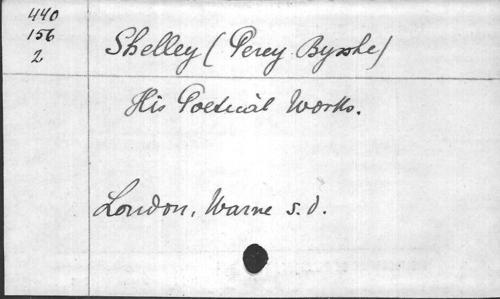 440
156
2
Shelley (Percy Bysshe)
His Poetical Works.
London, Warne s.d.